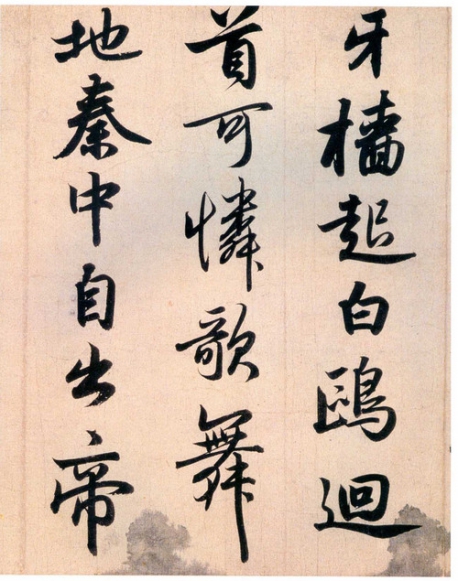 牙樯起白鷗迴
首可憐歌舞
地秦中自出帝